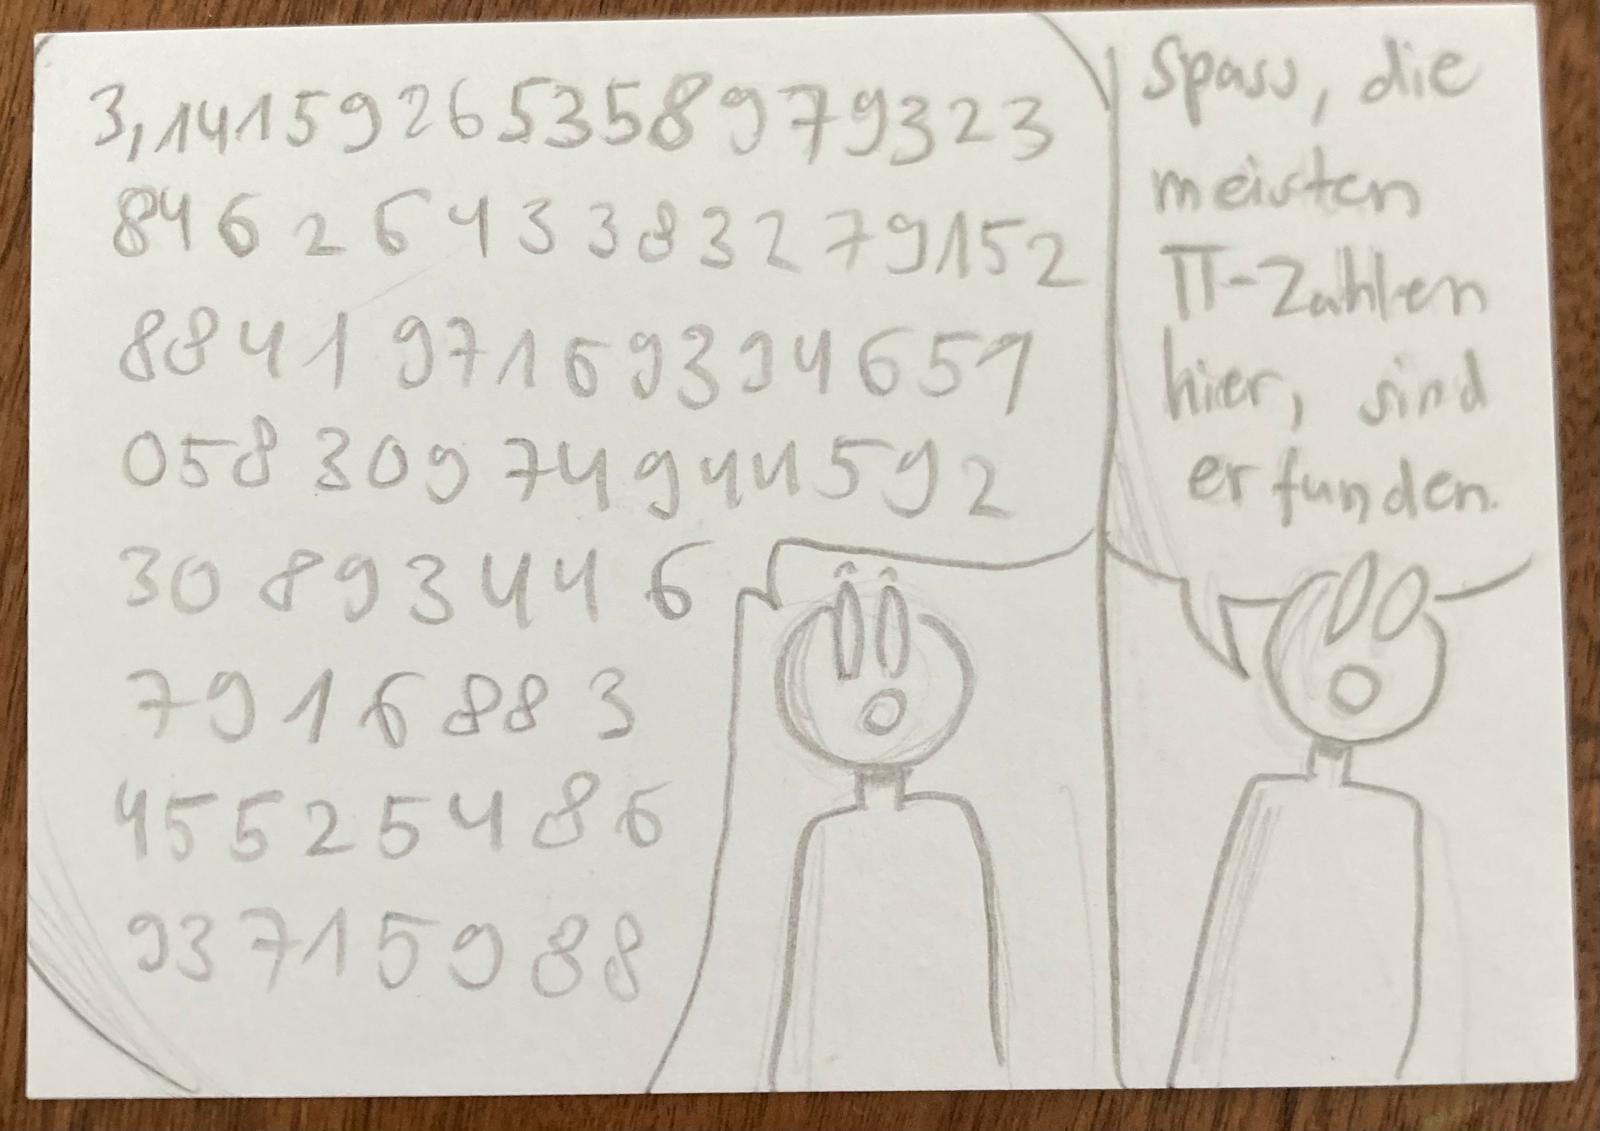 3,14159265358979323
846264338327 9152
884197169394651
058309749444592
3089344 6
7916883
45525486
93715988
Spass, die
meisten
π-Zahlen
hier, sind
erfunden.